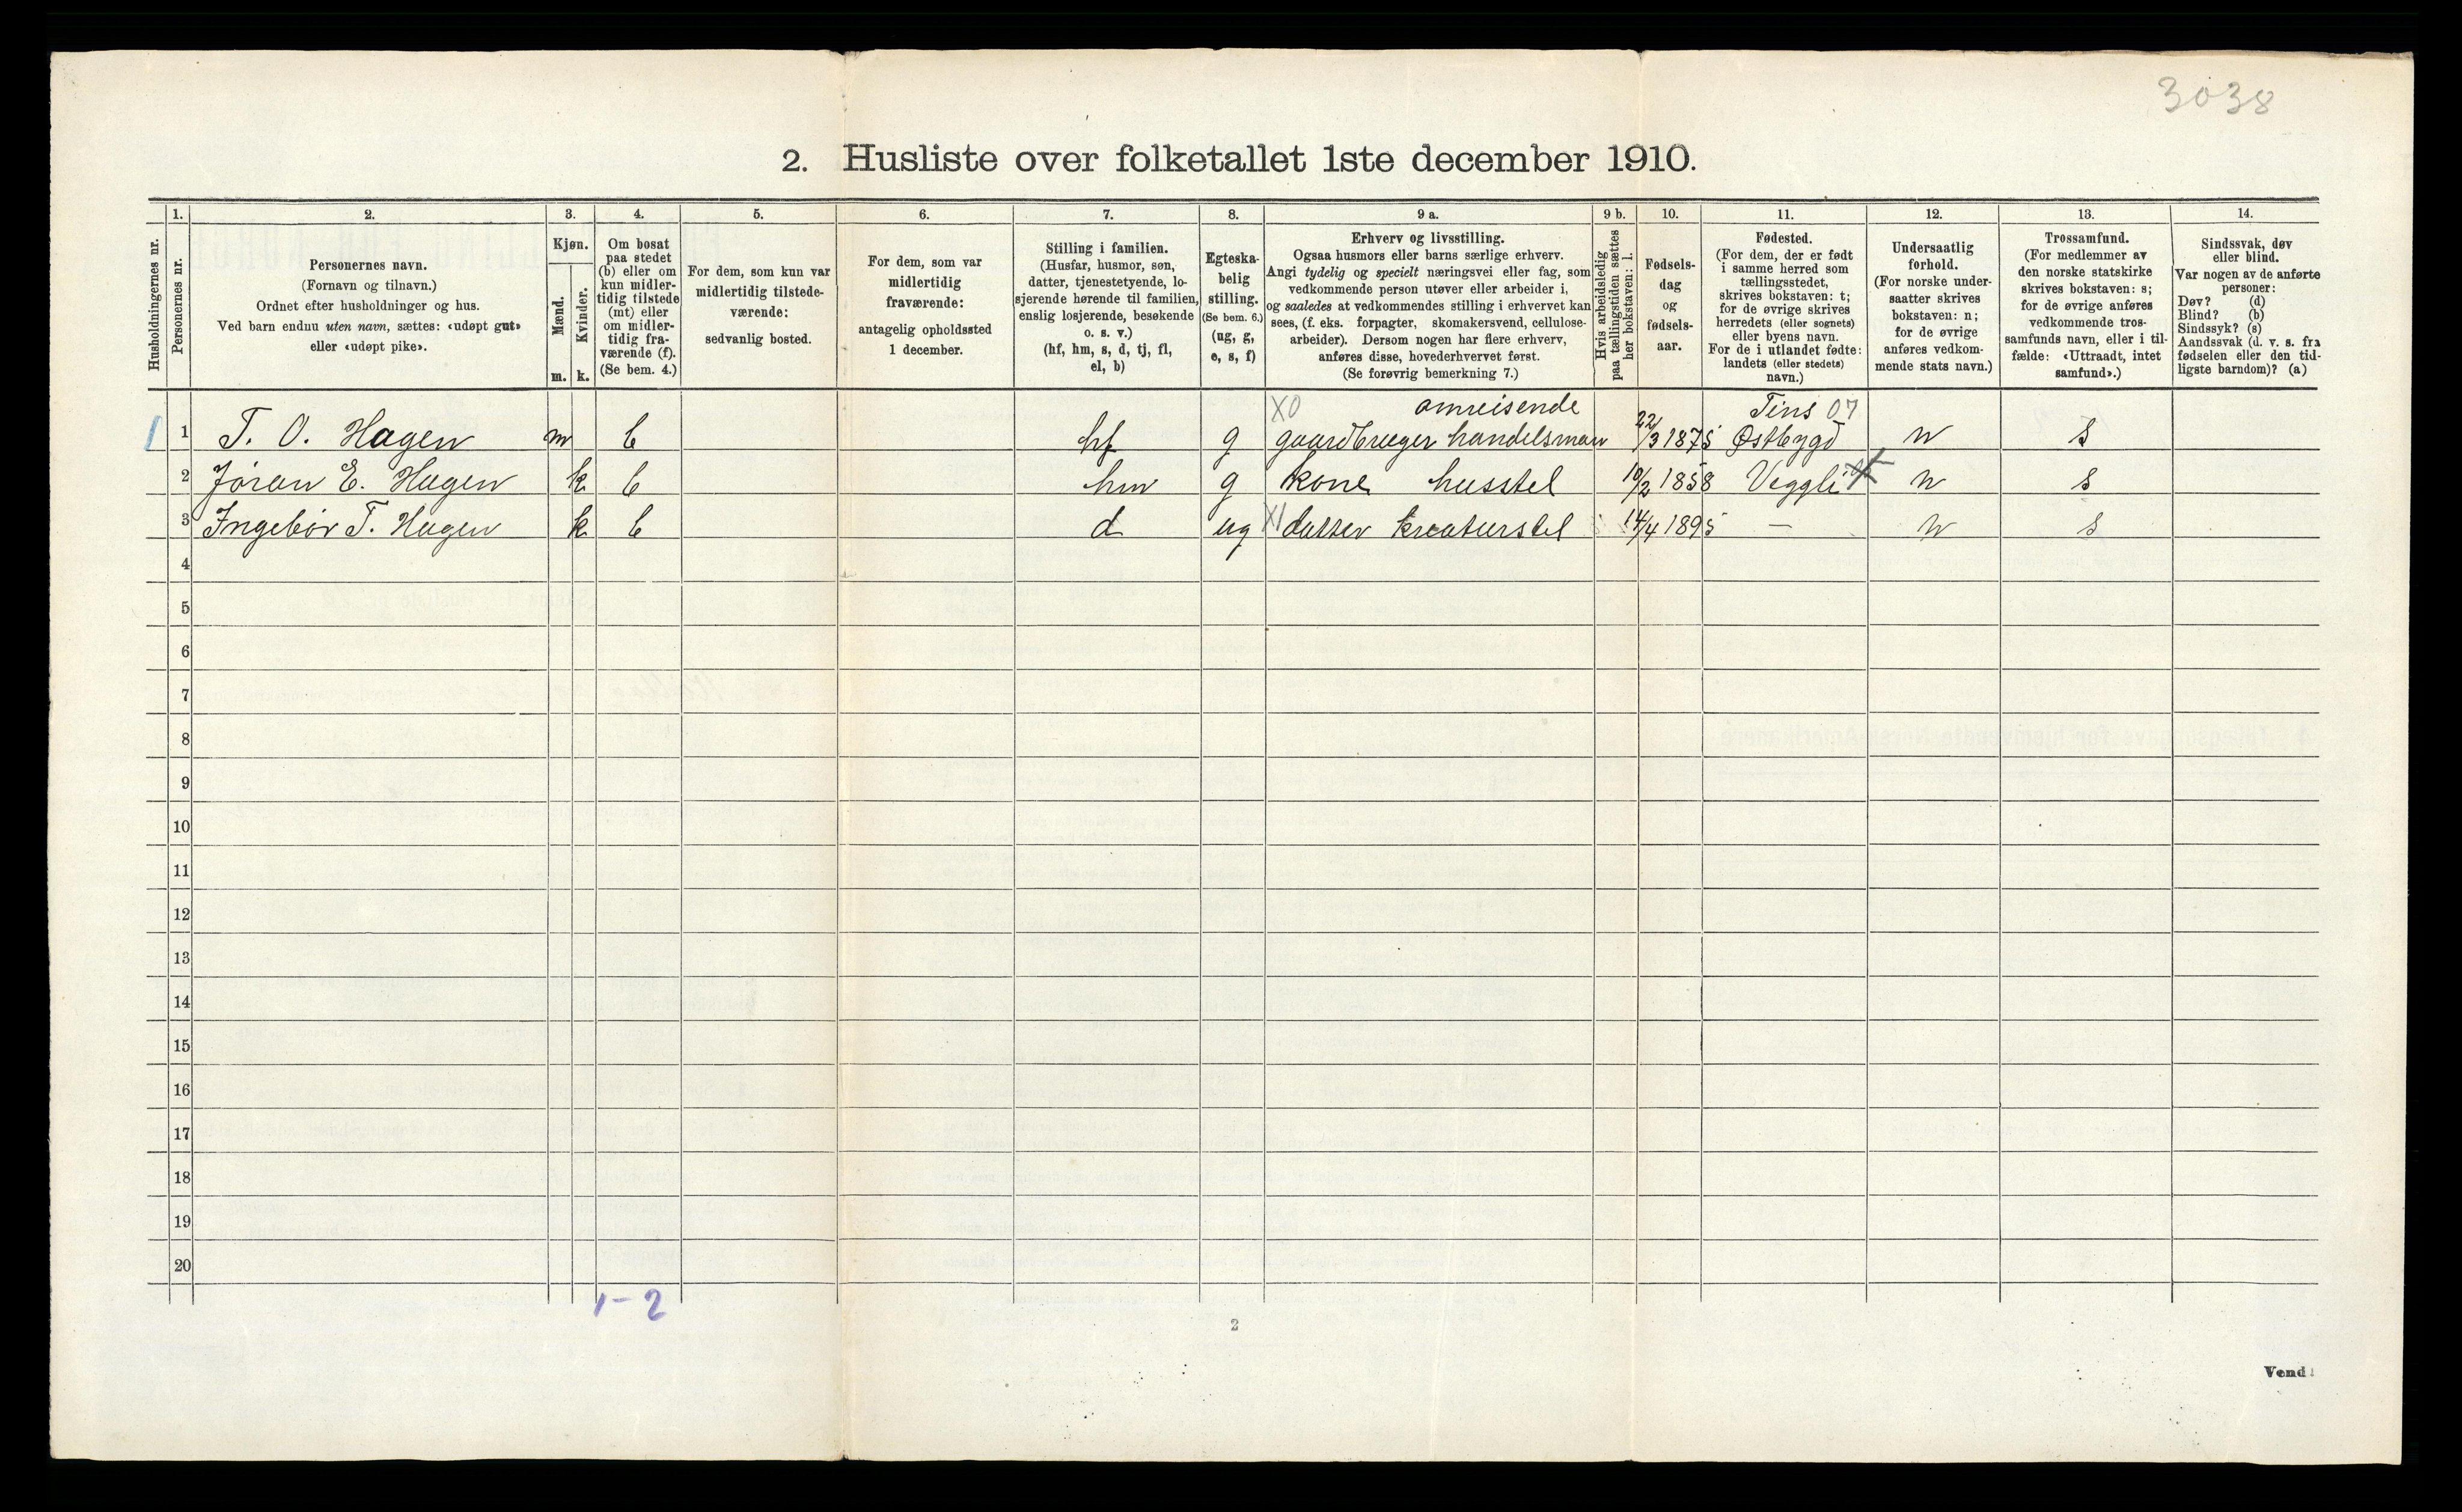 3038
2. Husliste over folketallet 1ste december 1910.
Husholdningernes nr.
1.
Personernes nr.
2.
Personernes navn.
(Fornavn og tilnavn.)
Ordnet efter husholdninger og hus.
Ved barn endnu uten navn, sættes: «udøpt gut»
eller «udøpt pike».
3.
Kjøn.
Mænd.
Kvinder.
m. k.
4.
Om bosat
paa stedet
(b) eller om
kun midler-
tidig tilstede
(mt) eller
om midler-
tidig fra-
værende (f).
(Se bem. 4.)
5.
For dem, som kun var
midlertidig tilstede-
værende:
sedvanlig bosted.
6.
For dem, som var
midlertidig
fraværende:
antagelig opholdssted
1 december.
7.
Stilling i familien.
(Husfar, husmor, søn,
datter, tjenestetyende, lo-
sjerende hørende til familien,
enslig losjerende, besøkende
o. s. v.)
(hf, hm, s, d, tj, fl,
el, b)
8.
Egteska-
belig
stilling.
(Se bem. 6.)
(ug, g,
e, s, f)
9 a.
Erhverv og livsstilling.
Ogsaa husmors eller barns særlige erhverv.
Angi tydelig og specielt næringsvei eller fag, som
vedkommende person utøver eller arbeider i,
og saaledes at vedkommendes stilling i erhvervet kan
sees, (f. eks. forpagter, skomakersvend, cellulose-
arbeider). Dersom nogen har flere erhverv,
anføres disse, hovederhvervet først.
(Se forøvrig bemerkning 7.)
9 b.
Hvis arbeidsledig
paa tællingstiden sættes
her bokstaven: l.
10.
Fødsels-
dag
og
fødsels-
aar.
11.
Fødested.
(For dem, der er født
i samme herred som
tællingsstedet,
skrives bokstaven: t;
for de øvrige skrives
herredets (eller sognets)
eller byens navn.
For de i utlandet fødte:
landets (eller stedets)
navn.)
12.
Undersaatlig
forhold.
(For norske under-
saatter skrives
bokstaven: n;
for de øvrige
anføres vedkom-
mende stats navn.)
13.
Trossamfund.
(For medlemmer av
den norske statskirke
skrives bokstaven: s;
for de øvrige anføres
vedkommende tros-
samfunds navn, eller i til-
fælde: «Uttraadt, intet
samfund».)
14.
Sindssvak, døv
eller blind.
Var nogen av de anførte
personer:
Døv? (d)
Blind? (b)
Sindssyk? (s)
Aandssvak (d. v. s. fra
fødselen eller den tid-
ligste barndom)? (a)
X0 omreisende Tins 07
1 1 T. O. Hagen m b hf g gaardbruger handelsman 22/3 1875 Østbygd n s
2 Jöran E. Hagen k b hm g kone husstel 10/2 1858 Veggli t n s
3 Ingebör T. Hagen k b d ug X1 datter kreaturstel 14/4 1895 — n s
4
5
6
7
8
9
10
11
12
13
14
15
16
17
18
19
20
1-2
2
Vend!